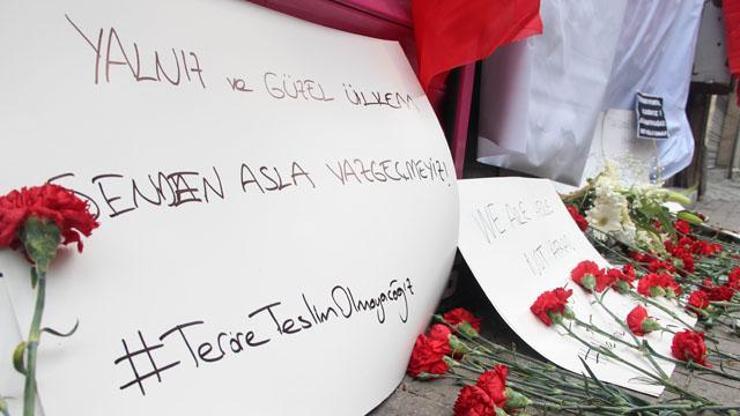 YALNIZ ve GÜZEL ÜLKEM,
SENDEN ASLA VAZGEÇMEYİZ!
#TeröreTeslimOlmayacağız
WE ARE HERE
NOT AFRAID